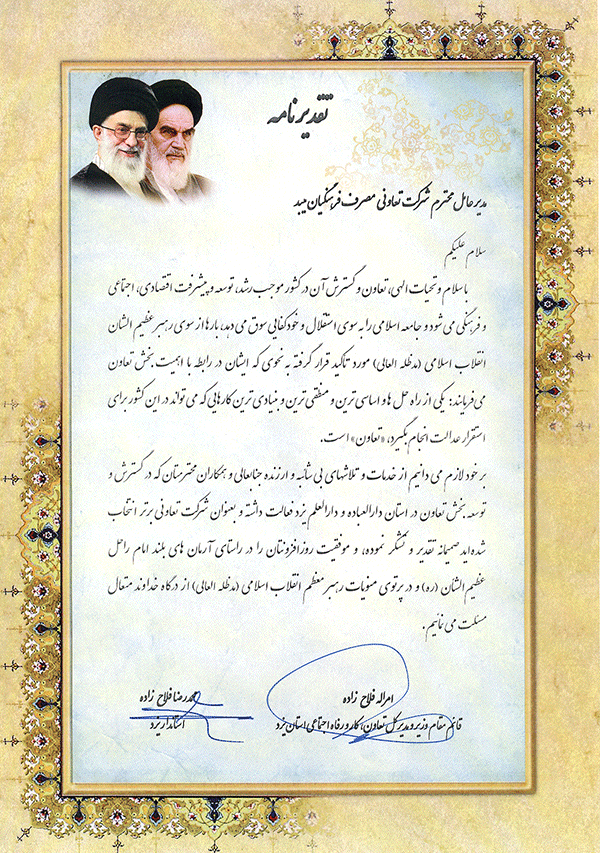 تقدیرنامه
مدیرعامل محترم شرکت تعاونی مصرف فرهنگیان میبد
سلام علیکم
با سلام و تحیات الهی، تعاون و گسترش آن در کشور موجب رشد، توسعه و پیشرفت اقتصادی، اجتماعی
و فرهنگی می شود و جامعه اسلامی را به سوی استقلال و خودکفایی سوق می دهد، بارها از سوی رهبر عظیم الشان
انقلاب اسلامی (مدظله العالی) مورد تاکید قرار گرفته به نحوی که ایشان در رابطه با اهمیت بخش تعاون
می فرمایند: یکی از راه حل ها و اساسی ترین و منطقی ترین و بنیادی ترین کارهایی که می تواند در این کشور برای
استقرار عدالت انجام بگیرد، «تعاون» است.
بر خود لازم می دانیم از خدمات و تلاشهای بی شائبه و ارزنده جنابعالی و همکاران محترمتان که در گسترش و
توسعه بخش تعاون در استان دارالعباده و دارالعلم یزد فعالیت داشته و بعنوان شرکت تعاونی برتر انتخاب
شده اید صمیمانه تقدیر و تشکر نموده، و موفقیت روزافزونتان را در راستای آرمان های بلند امام راحل
عظیم الشان (ره) و در پرتوی منویات رهبر معظم انقلاب اسلامی (مدظله العالی) از درگاه خداوند متعال
مسئلت می نمائیم.
امراله فلاح زاده
قائم مقام وزیر و مدیرکل تعاون، کار و رفاه اجتماعی استان یزد
محمدرضا فلاح زاده
استاندار یزد